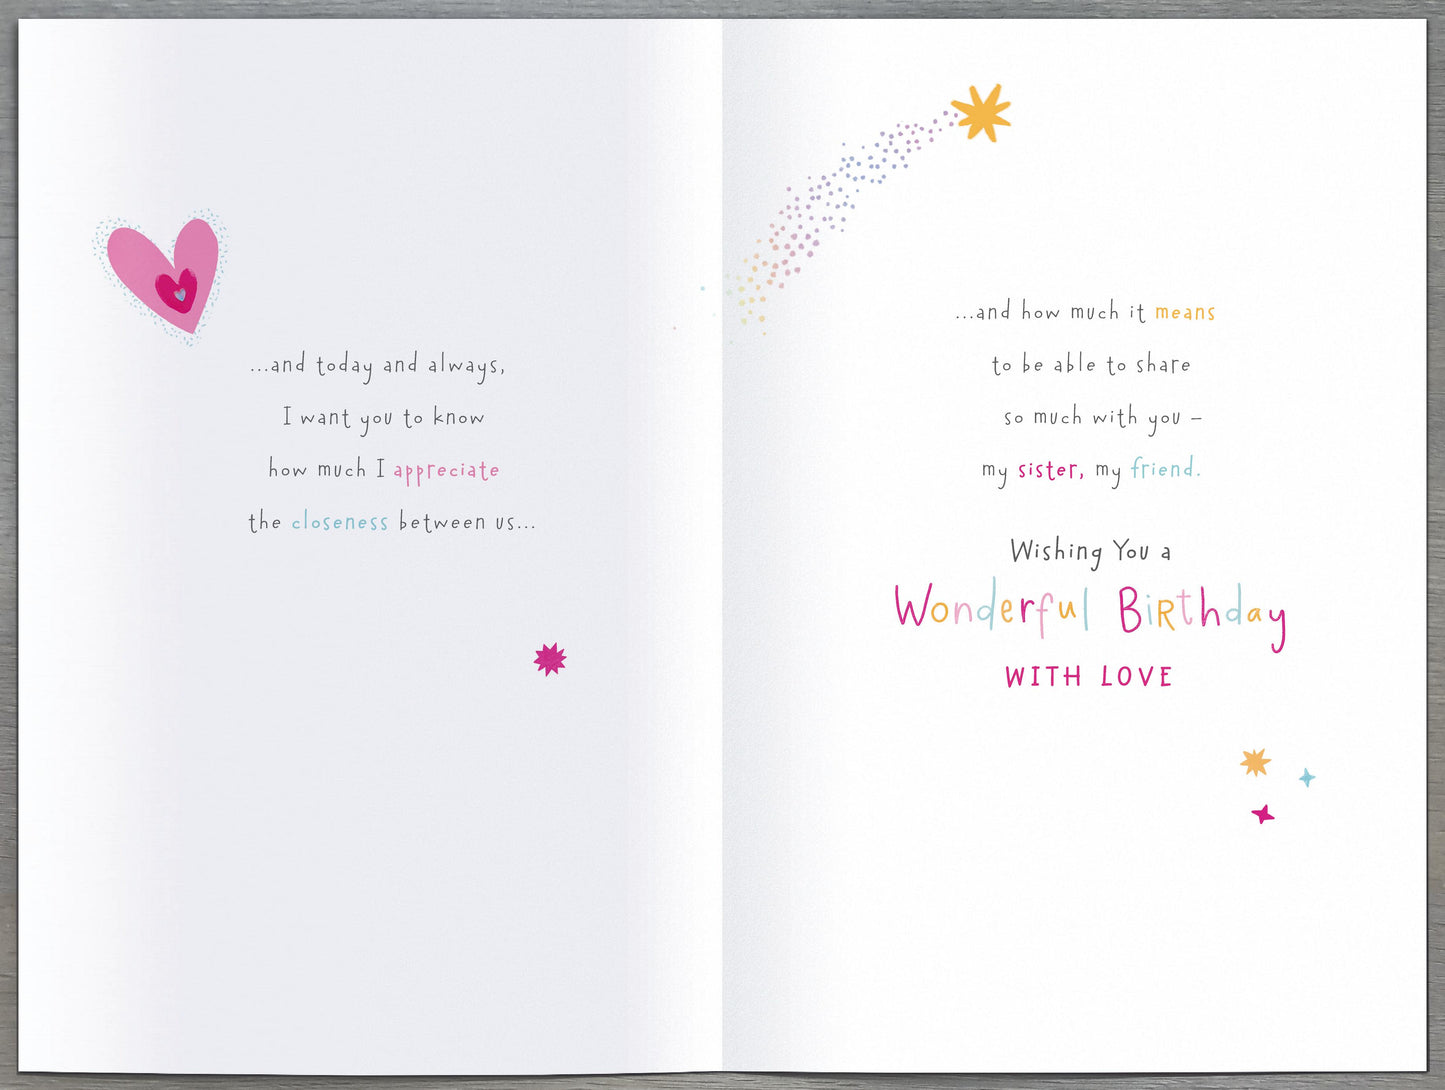 ...and today and always,
I want you to know
how much I appreciate
the closeness between us...
...and how much it means
to be able to share
so much with you –
my sister, my friend.
Wishing You a
Wonderful Birthday
WITH LOVE